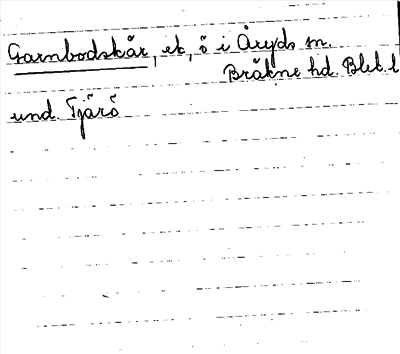 Garnbodskär, ek, ö i Åryds sn.
Bräkne hd. Blek. l
und. Tjärö